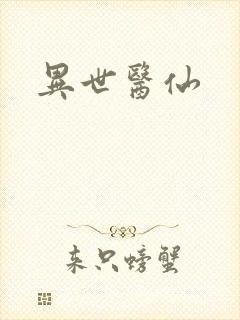 異世醫仙
来只螃蟹